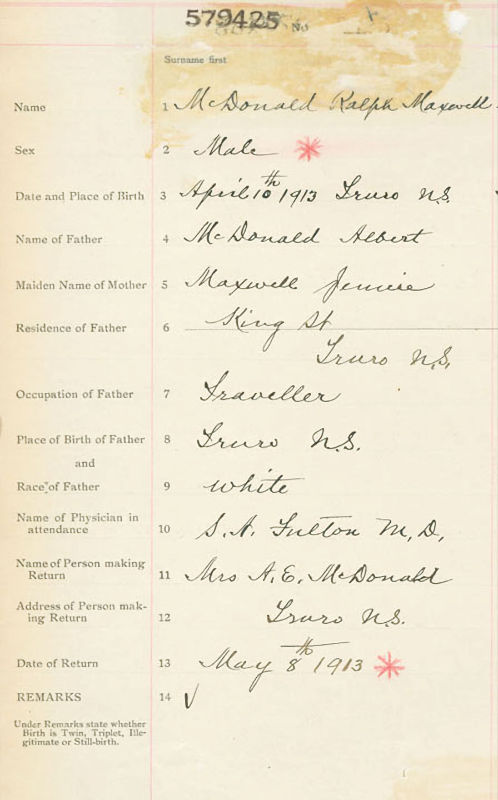 579425
No
Surname first
Name 1 McDonald Ralph Maxwell
Sex 2 Male
Date and Place of Birth 3 April 10th 1913 Truro N.S.
Name of Father 4 McDonald Albert
Maiden Name of Mother 5 Maxwell Jennie
Residence of Father 6 King St
Truro N.S.
Occupation of Father 7 Traveller
Place of Birth of Father 8 Truro N.S.
and
Race of Father 9 White
Name of Physician in
attendance 10 S. A. Fulton M.D.,
Name of Person making
Return 11 Mrs A. E. McDonald
Address of Person mak-
ing Return 12 Truro N.S.
Date of Return 13 May 8th 1913
REMARKS 14
Under Remarks state whether
Birth is Twin, Triplet, Ille-
gitimate or Still-birth.